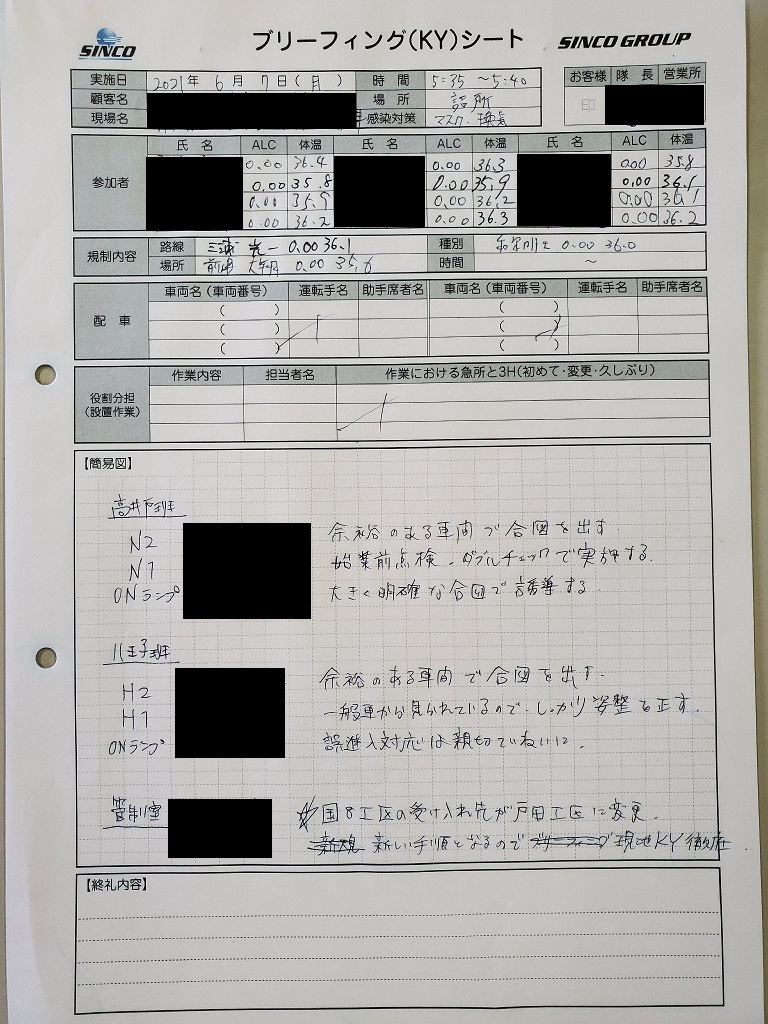 SINCO
ブリーフィング(KY)シート
SINCO GROUP
実施日 2021年 6月 7日(月) 時間 5:35 ~5:40
お客様 隊長 営業所
顧客名 場所 詰所
印
現場名 感染対策 マスク・換気
参加者
氏名 ALC 体温 氏名 ALC 体温 氏名 ALC 体温
0.00 36.4 0.00 36.3 0.00 35.8
0.00 35.8 0.00 35.9 0.00 36.1
0.00 35.9 0.00 36.2 0.00 36.1
0.00 36.2 0.00 36.3 0.00 36.2
規制内容
路線 三浦 光一 0.00 36.1 種別 0.00 36.0
場所 前浦 0.00 35.6 時間 ~
配車
車両名(車両番号) 運転手名 助手席者名 車両名(車両番号) 運転手名 助手席者名
( ) ( )
( ) ( )
( ) ( )
役割分担
(設置作業)
作業内容 担当者名 作業における急所と3H(初めて・変更・久しぶり)
【簡易図】
高井戸班
N2
N1
ONランプ
余裕のある車間で合図を出す.
始業前点検、ダブルチェックで実施する.
大きく明確な合図で誘導する.
八王子班
H2
H1
ONランプ
余裕のある車間で合図を出す.
一般車から見かれているので、しっかり姿整を正す.
誤進入対応は親切ていねいに.
管制室
☆国8工区の受け入れ先が戸田工区に変更.
新規 新しい手順となるので ブリーフィング 現地KY徹底.
【終礼内容】